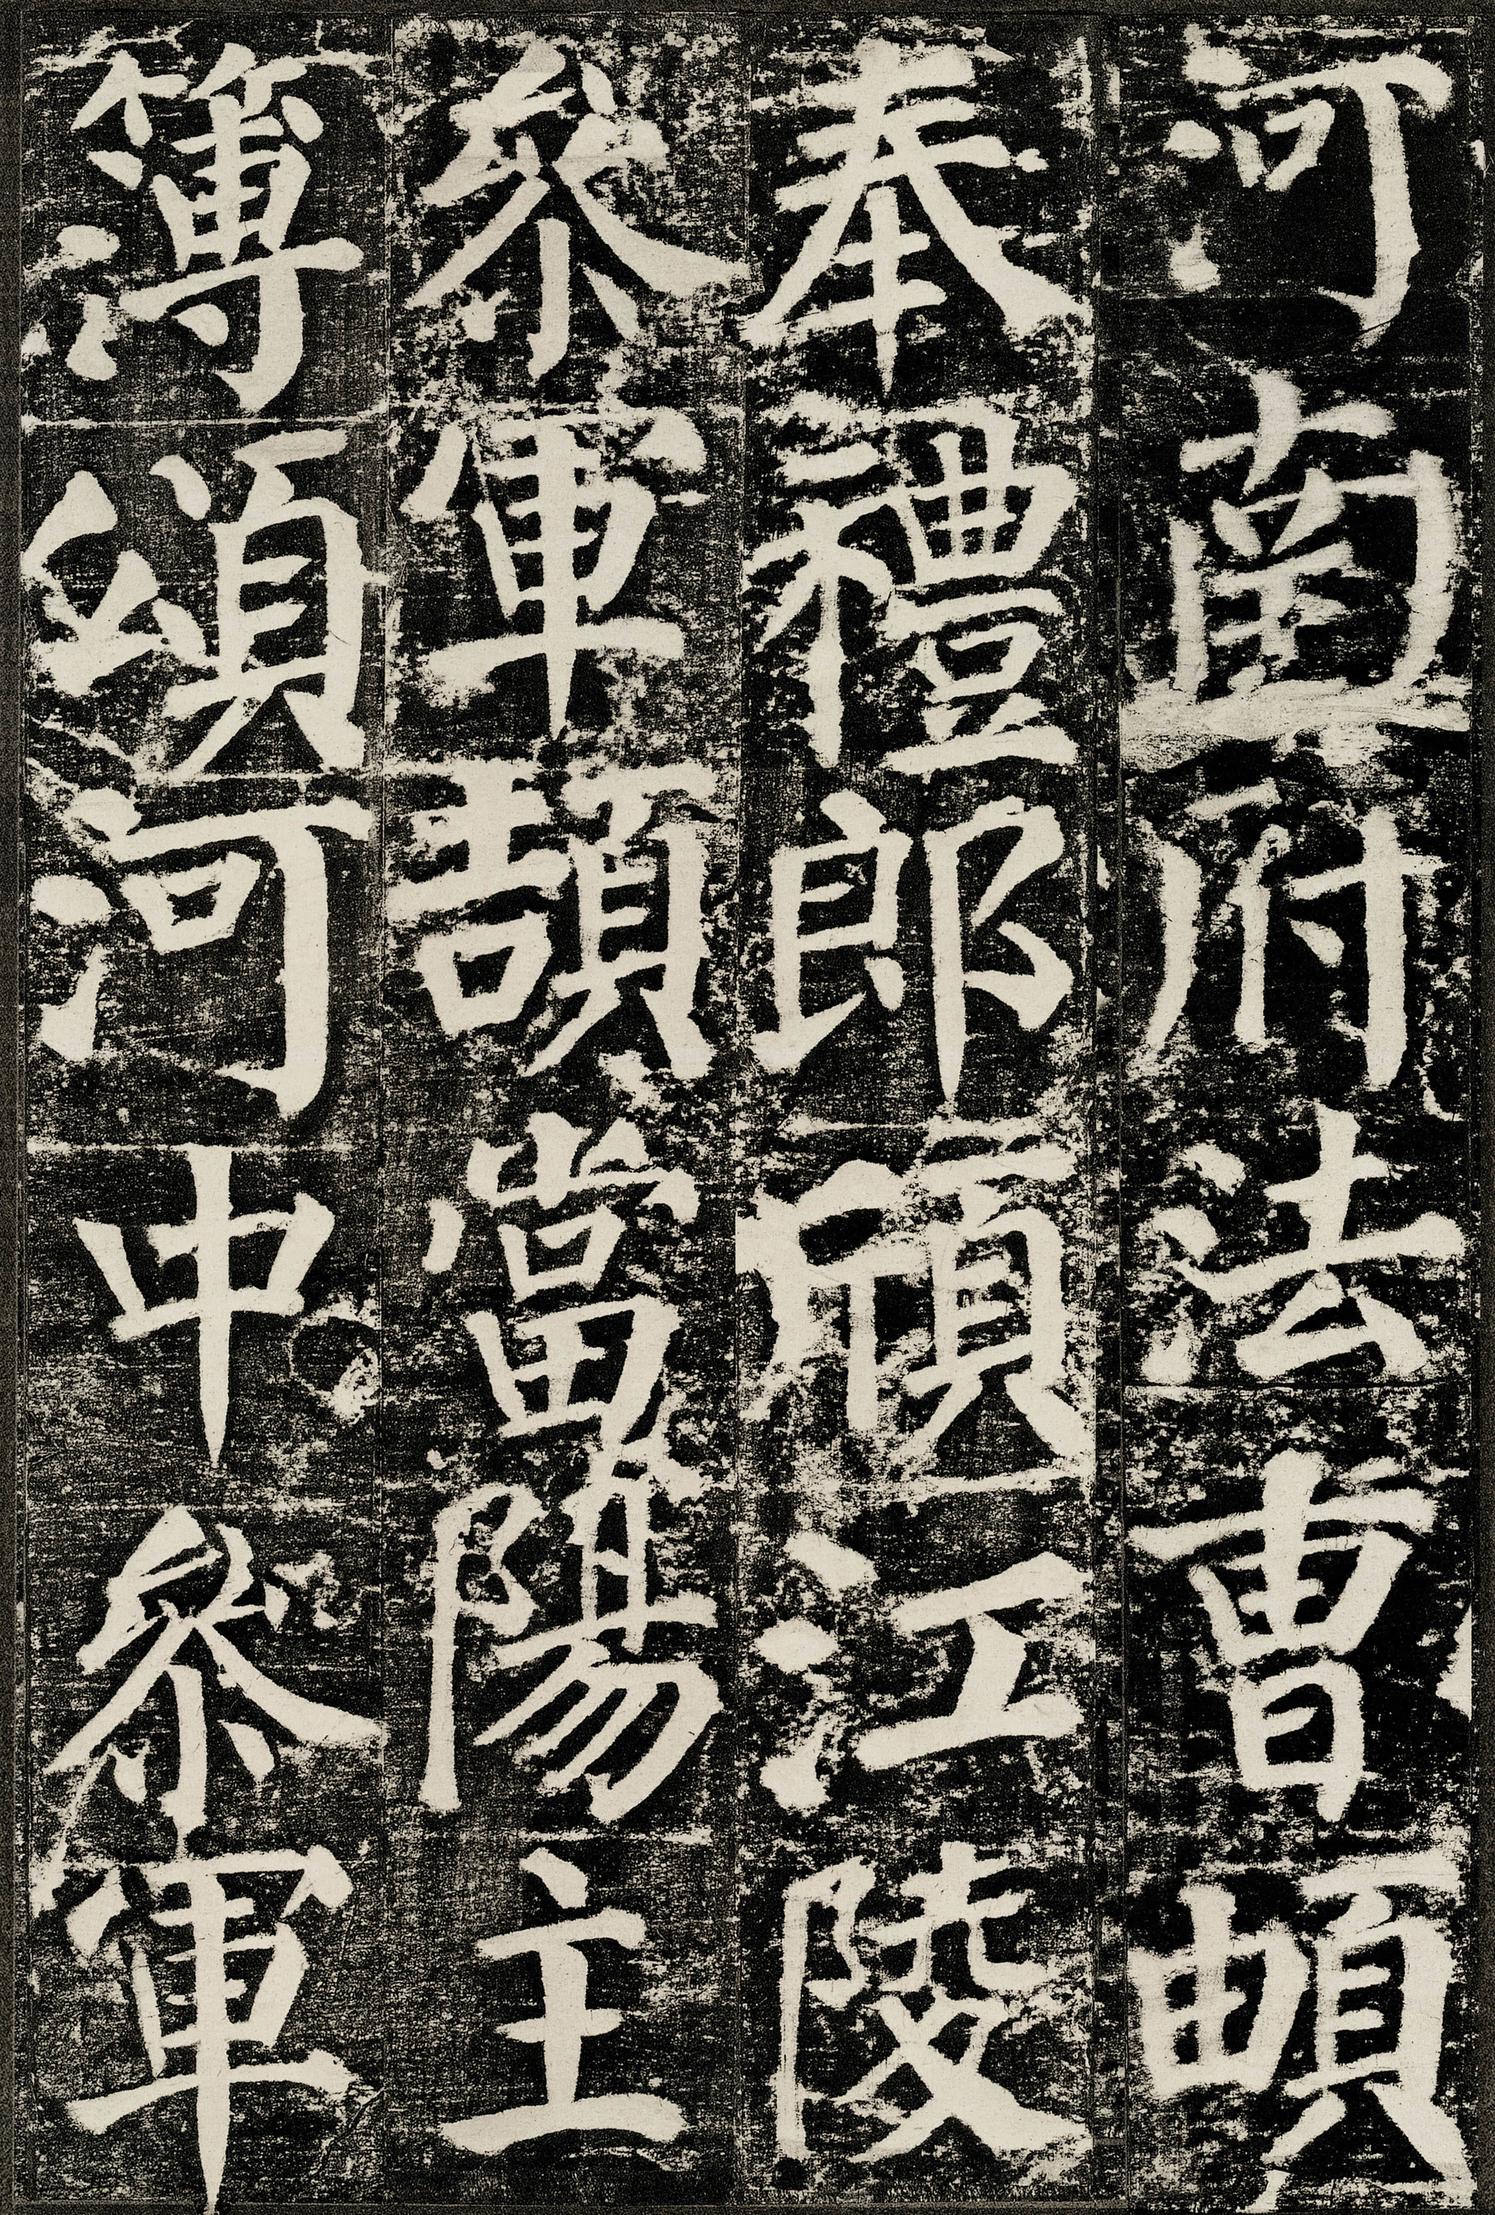 河南府法曹頔
奉禮郎頎江陵
參軍頡當陽主
簿頌河中參軍